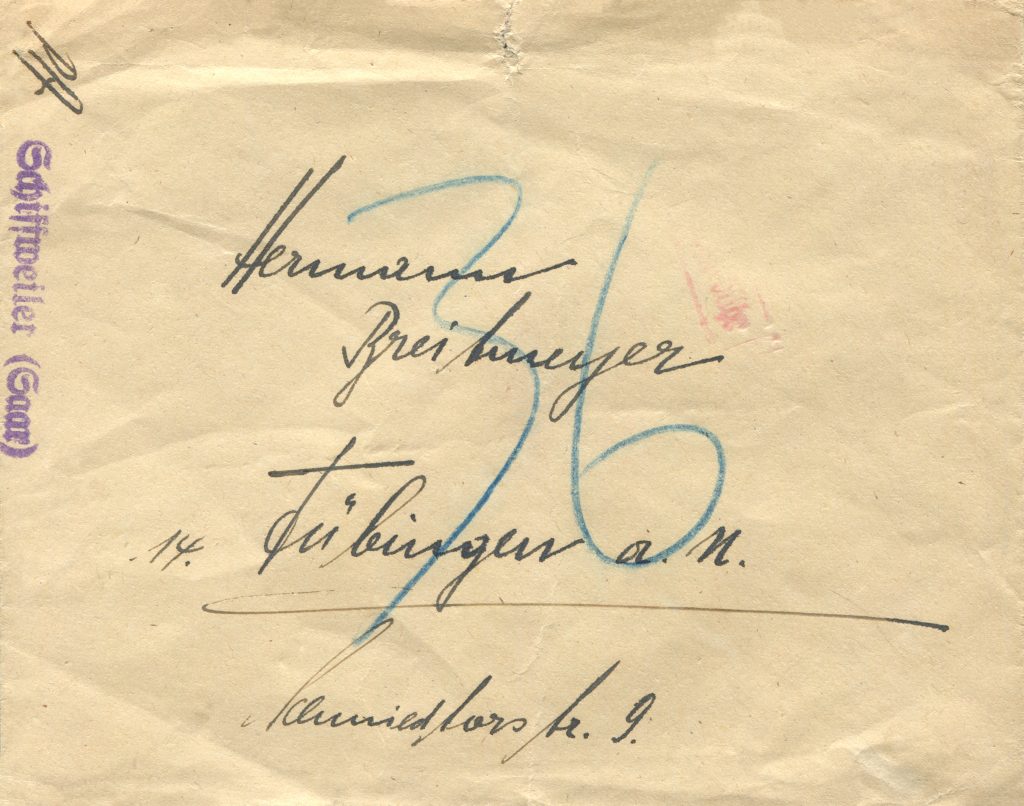 Schiffweiler (Saar)
36
Hermann
Breitmeyer
14. Tübingen a. N.
Schmiedtorstr. 9.